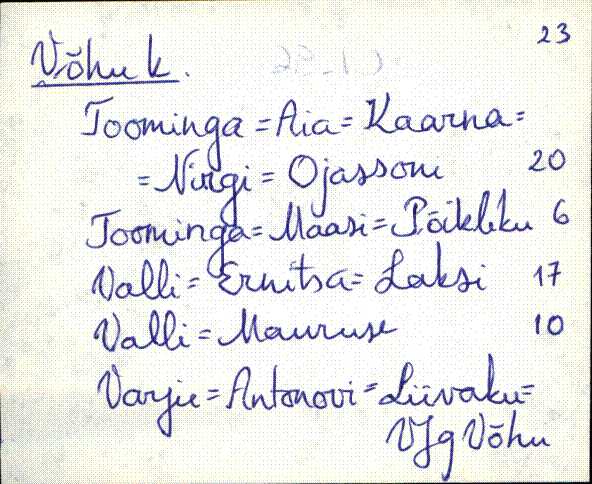 23
Võhu k.
Toominga = Aia = Kaarna =
= Nirgi = Ojassoni 20
Toominga = Maasi = Põikliku 6
Valli = Ernitsa = Laksi 17
Valli = Mauruse 10
Varje = Antonovi = Liivaku =
VJg Võhu